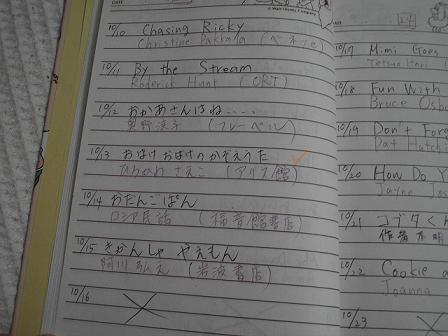 10/10 Chasing Ricky
Christine
10/11 By the Stream
Roderick Hunt (ORT)
10/12 おかあさんはね....
(フレーベル)
10/13 おばけおばけのかぞえうた
さえこ (アリス館)
10/14 おだんごぱん
ロシア民話 (福音館書店)
10/15 きかんしゃ やえもん
阿川弘之 (岩波書店)
10/16
10/17 Mimi Goes
10/18 Fun With
Bruce
10/19 Don't
10/20 How Do
Jayne
10/21 コブタくん
10/22 Cookie
Joanna
10/23